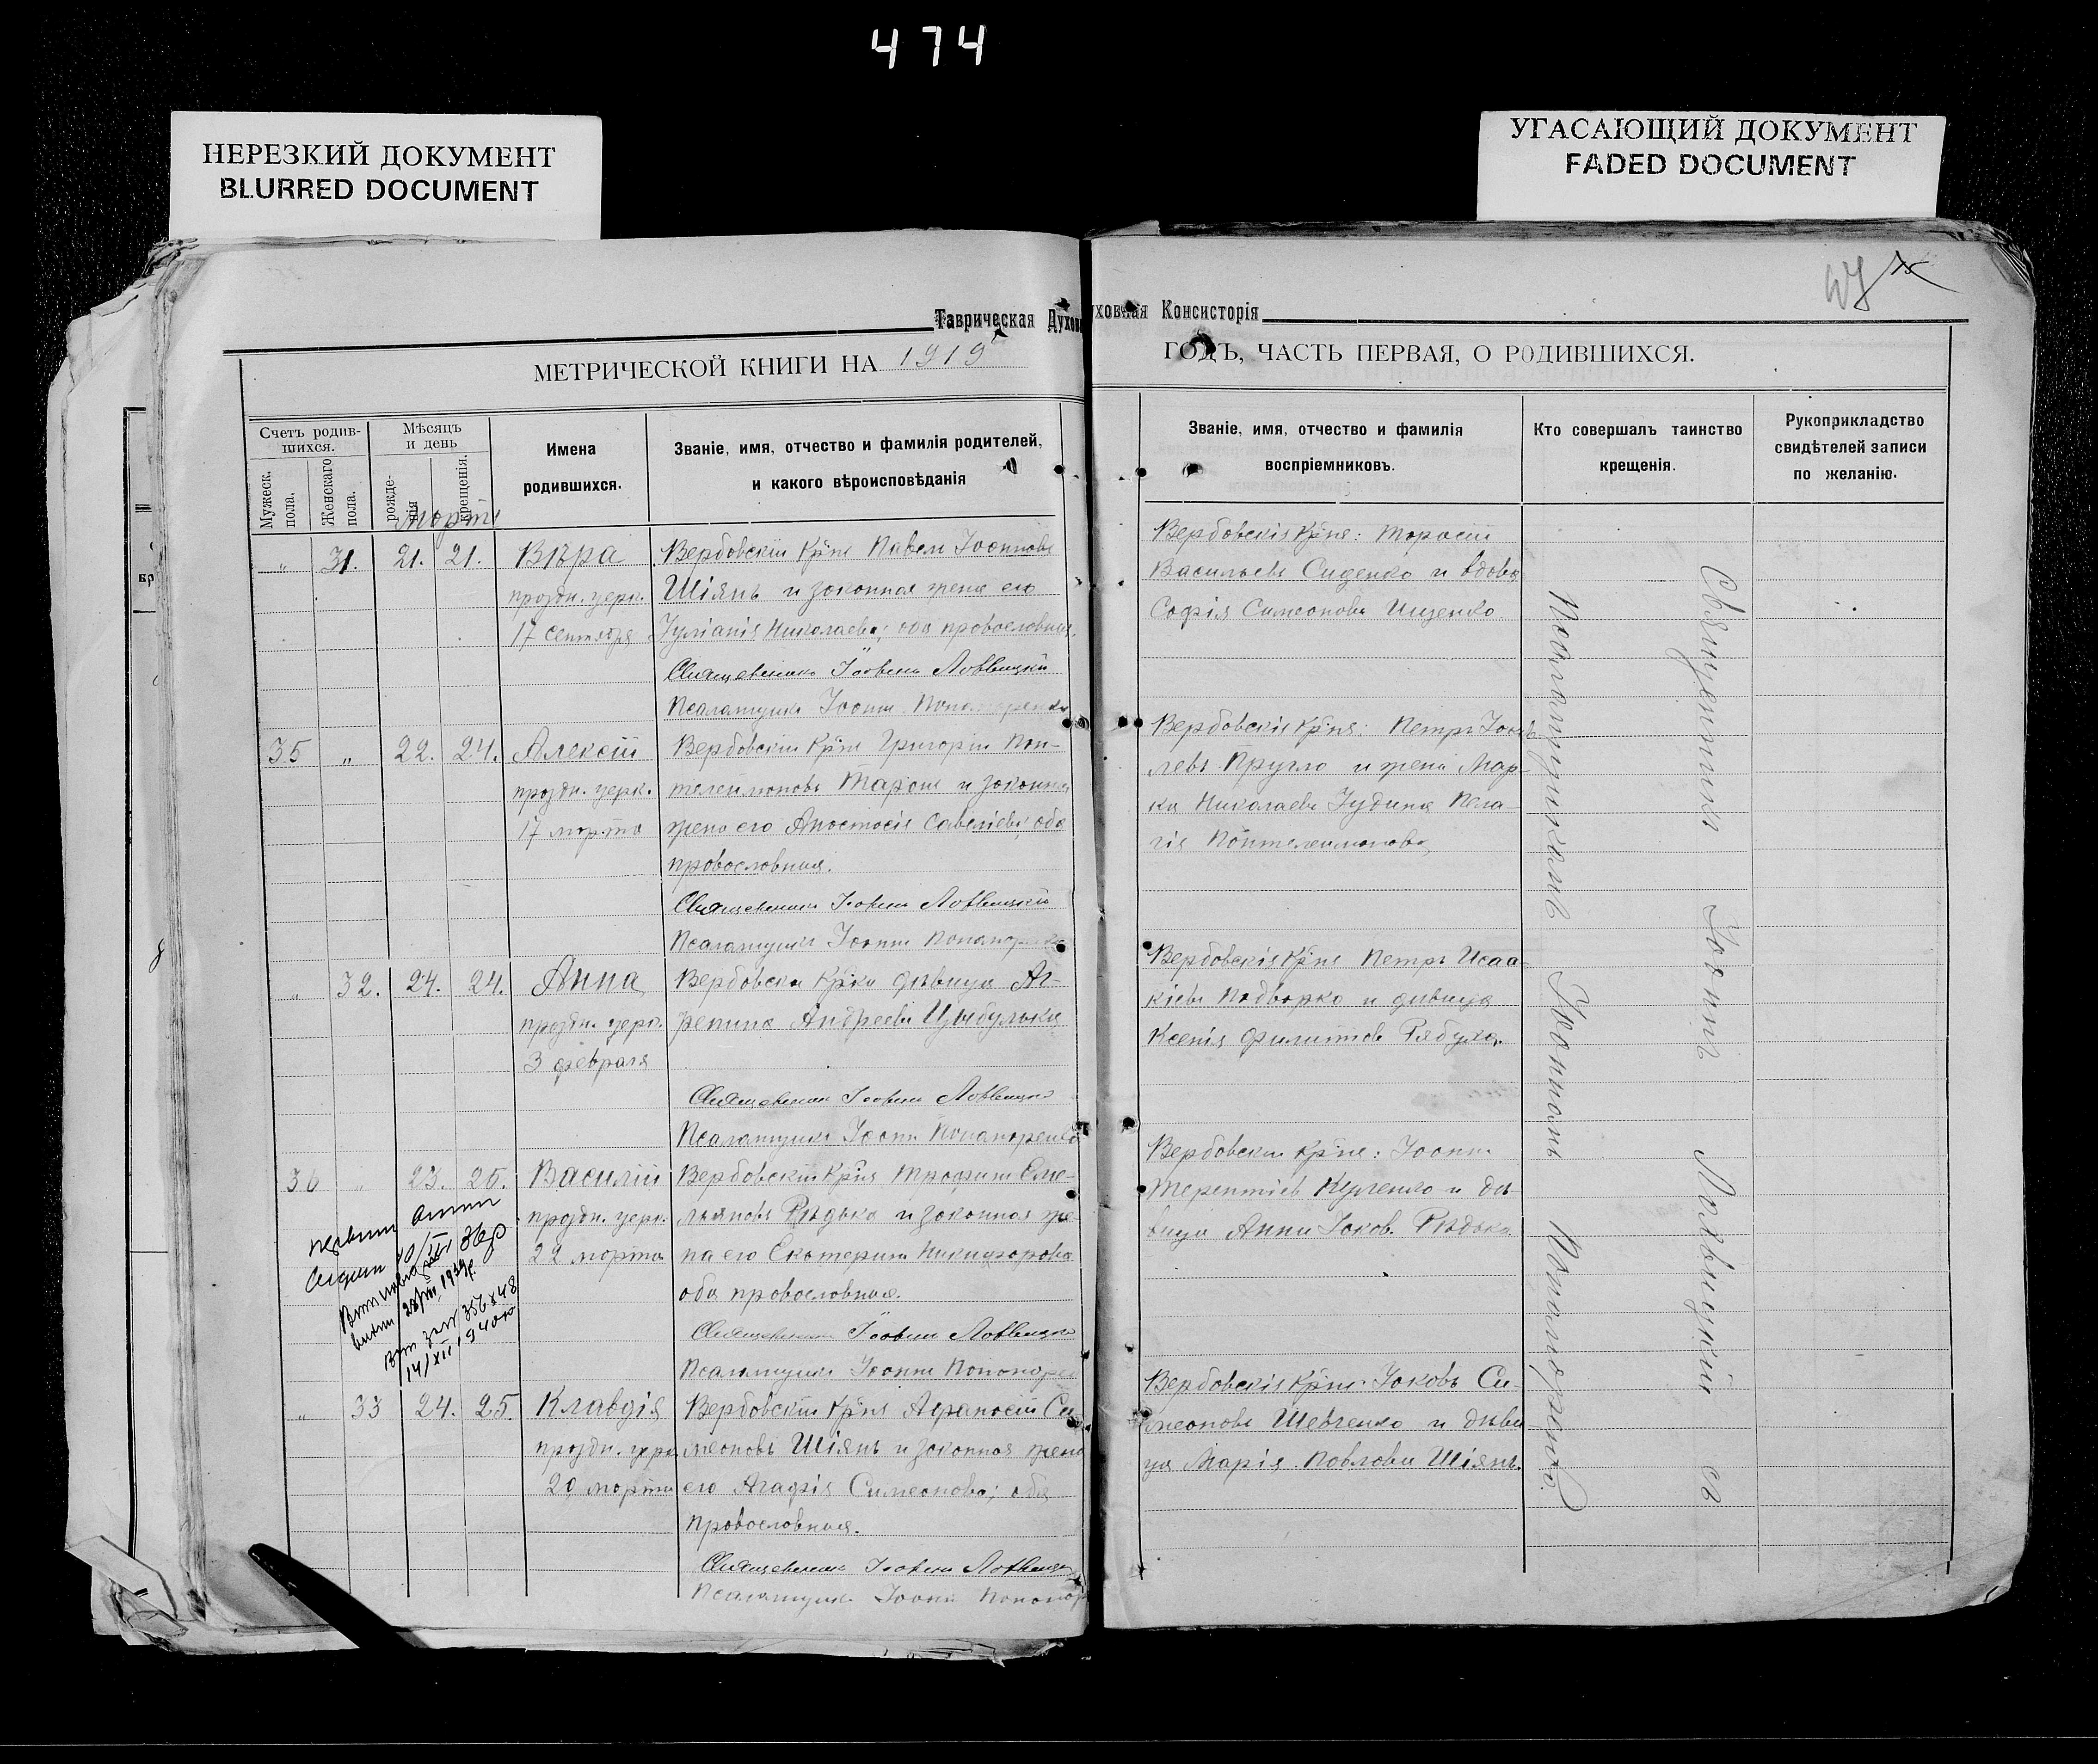 474
НЕРЕЗКИЙ ДОКУМЕНТ
BLURRED DOCUMENT
УГАСАЮЩИЙ ДОКУМЕНТ
FADED DOCUMENT
Таврическая Духовная Консисторія
МЕТРИЧЕСКОЙ КНИГИ НА 1919
ГОДЪ, ЧАСТЬ ПЕРВАЯ, О РОДИВШИХСЯ.
Счетъ родив-
шихся.
Мужеск. пола.
Женскаго пола.
Мѣсяцъ
и день
рожде-
нія
крещенія.
Имена
родившихся.
Званіе, имя, отчество и фамилія родителей,
и какого вѣроисповѣданія
Званіе, имя, отчество и фамилія
воспріемниковъ.
Кто совершалъ таинство
крещенія.
Рукоприкладство
свидѣтелей записи
по желанію.
Мартъ
„ 31. 21. 21. Вѣра
праздн. церк.
17 сентября
Вербовскій Кр̃нъ Павелъ Іоанновъ
Шіянъ и законная жена его
Іуліанія Николаева; оба православные.
Священникъ Іоаннъ Лотвицкій
Псаломщикъ Іоаннъ Пономаренко
Вербовскіе Кр̃не: Тарасій
Васильевъ Сиденко и вдова
Софія Симеонова Ищенко.
35 „ 22. 24. Алексій
праздн. церк.
17 марта
Вербовскій Кр̃нъ Григорій Пан-
телеимоновъ Таран и законная
жена его Анастасія Савеліева; оба
православные.
Священникъ Іоаннъ Лотвицкій
Псаломщикъ Іоаннъ Пономаренко
Вербовскіе Кр̃не: Петръ
левъ Кругло и жена Мар-
ка Николаева Іудина Пела-
гія Пантелеимонова
„ 32. 24. 24. Анна
праздн. церк.
3 февраля
Вербовская Кр̃ка дѣвица Аг-
репина Андреева Цыбулька
Священникъ Іоаннъ Лотвицкій
Псаломщикъ Іоаннъ Пономаренко
Вербовскіе Кр̃не Петръ Исаа-
кіевъ Подворко и дѣвица
Ксенія Филиппова Рябуха.
36 „ 23. 25. Василій
праздн. церк.
22 марта
Вербовскій Кр̃нъ Трофимъ Еме-
льяновъ Рѣдька и законная же-
на его Екатерина Никифорова
оба православные.
Священникъ Іоаннъ Лотвицкій
Псаломщикъ Іоаннъ Пономарен
Вербовскіе Кр̃не: Іоаннъ
Терентіевъ Куленко и дѣ-
вица Анна Іаков. Рѣдька
1939г.
14/XII 1940
„ 33 24. 25. Клавдія
праздн. церк.
20 марта
Вербовскій Кр̃нъ Аѳанасій Си-
меоновъ Шіянъ и законная жена
его Агафія Симеонова; оба
православные.
Священникъ Іоаннъ Лотвицкій
Псаломщикъ Іоаннъ Пономар
Вербовскіе Кр̃не: Іаковъ Си-
меоновъ Шевченко и дѣви
ца Марія Павлова Шіянъ.
Священникъ Іоаннъ Лотвицкій съ
Псаломщикомъ Іоанномъ Пономаренко.